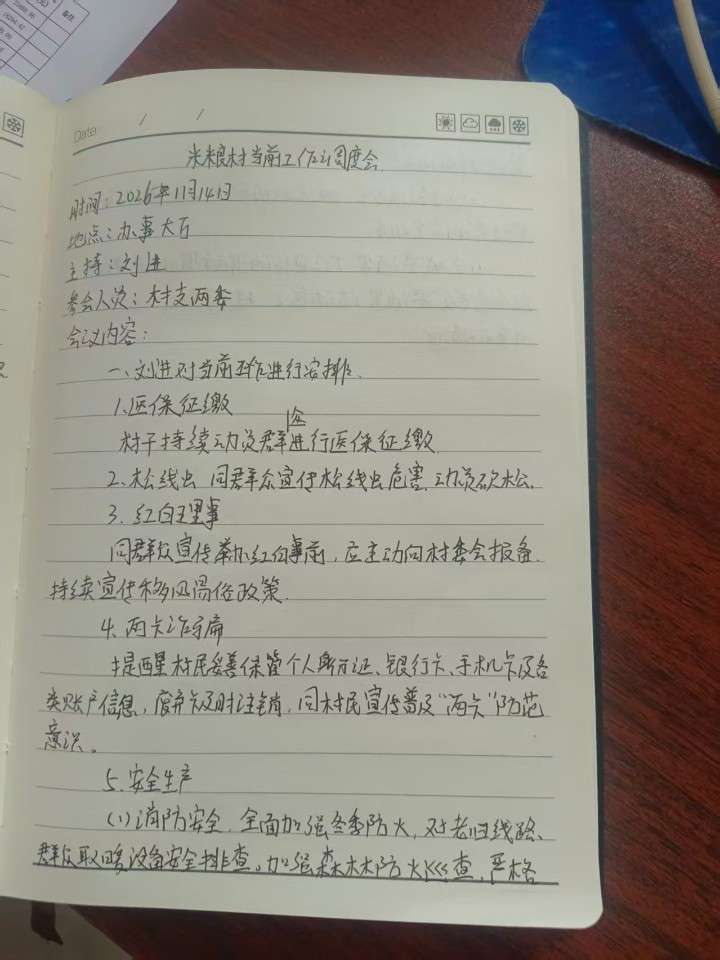 Date / /
米粮村当前工作调度会
时间:2026年11月14日
地点:办事大厅
主持:刘进
参会人员:村支两委
会议内容:
一、刘进对当前工作进行安排.
1.医保征缴
村干持续动员群众进行医保征缴.
2、松线虫 向群众宣传松线虫危害,动员砍松.
3、红白理事
向群众宣传举办红白事前,应主动向村委会报备.
持续宣传移风易俗政策.
4、两卡诈骗
提醒村民妥善保管个人身份证、银行卡、手机卡及各
类账户信息,废弃卡及时注销,向村民宣传普及“两卡”防范
意识。
5.安全生产
(1)消防安全.全面加强冬季防火,对老旧线路、
群众取暖设备安全排查。加强森林防火巡查,严格